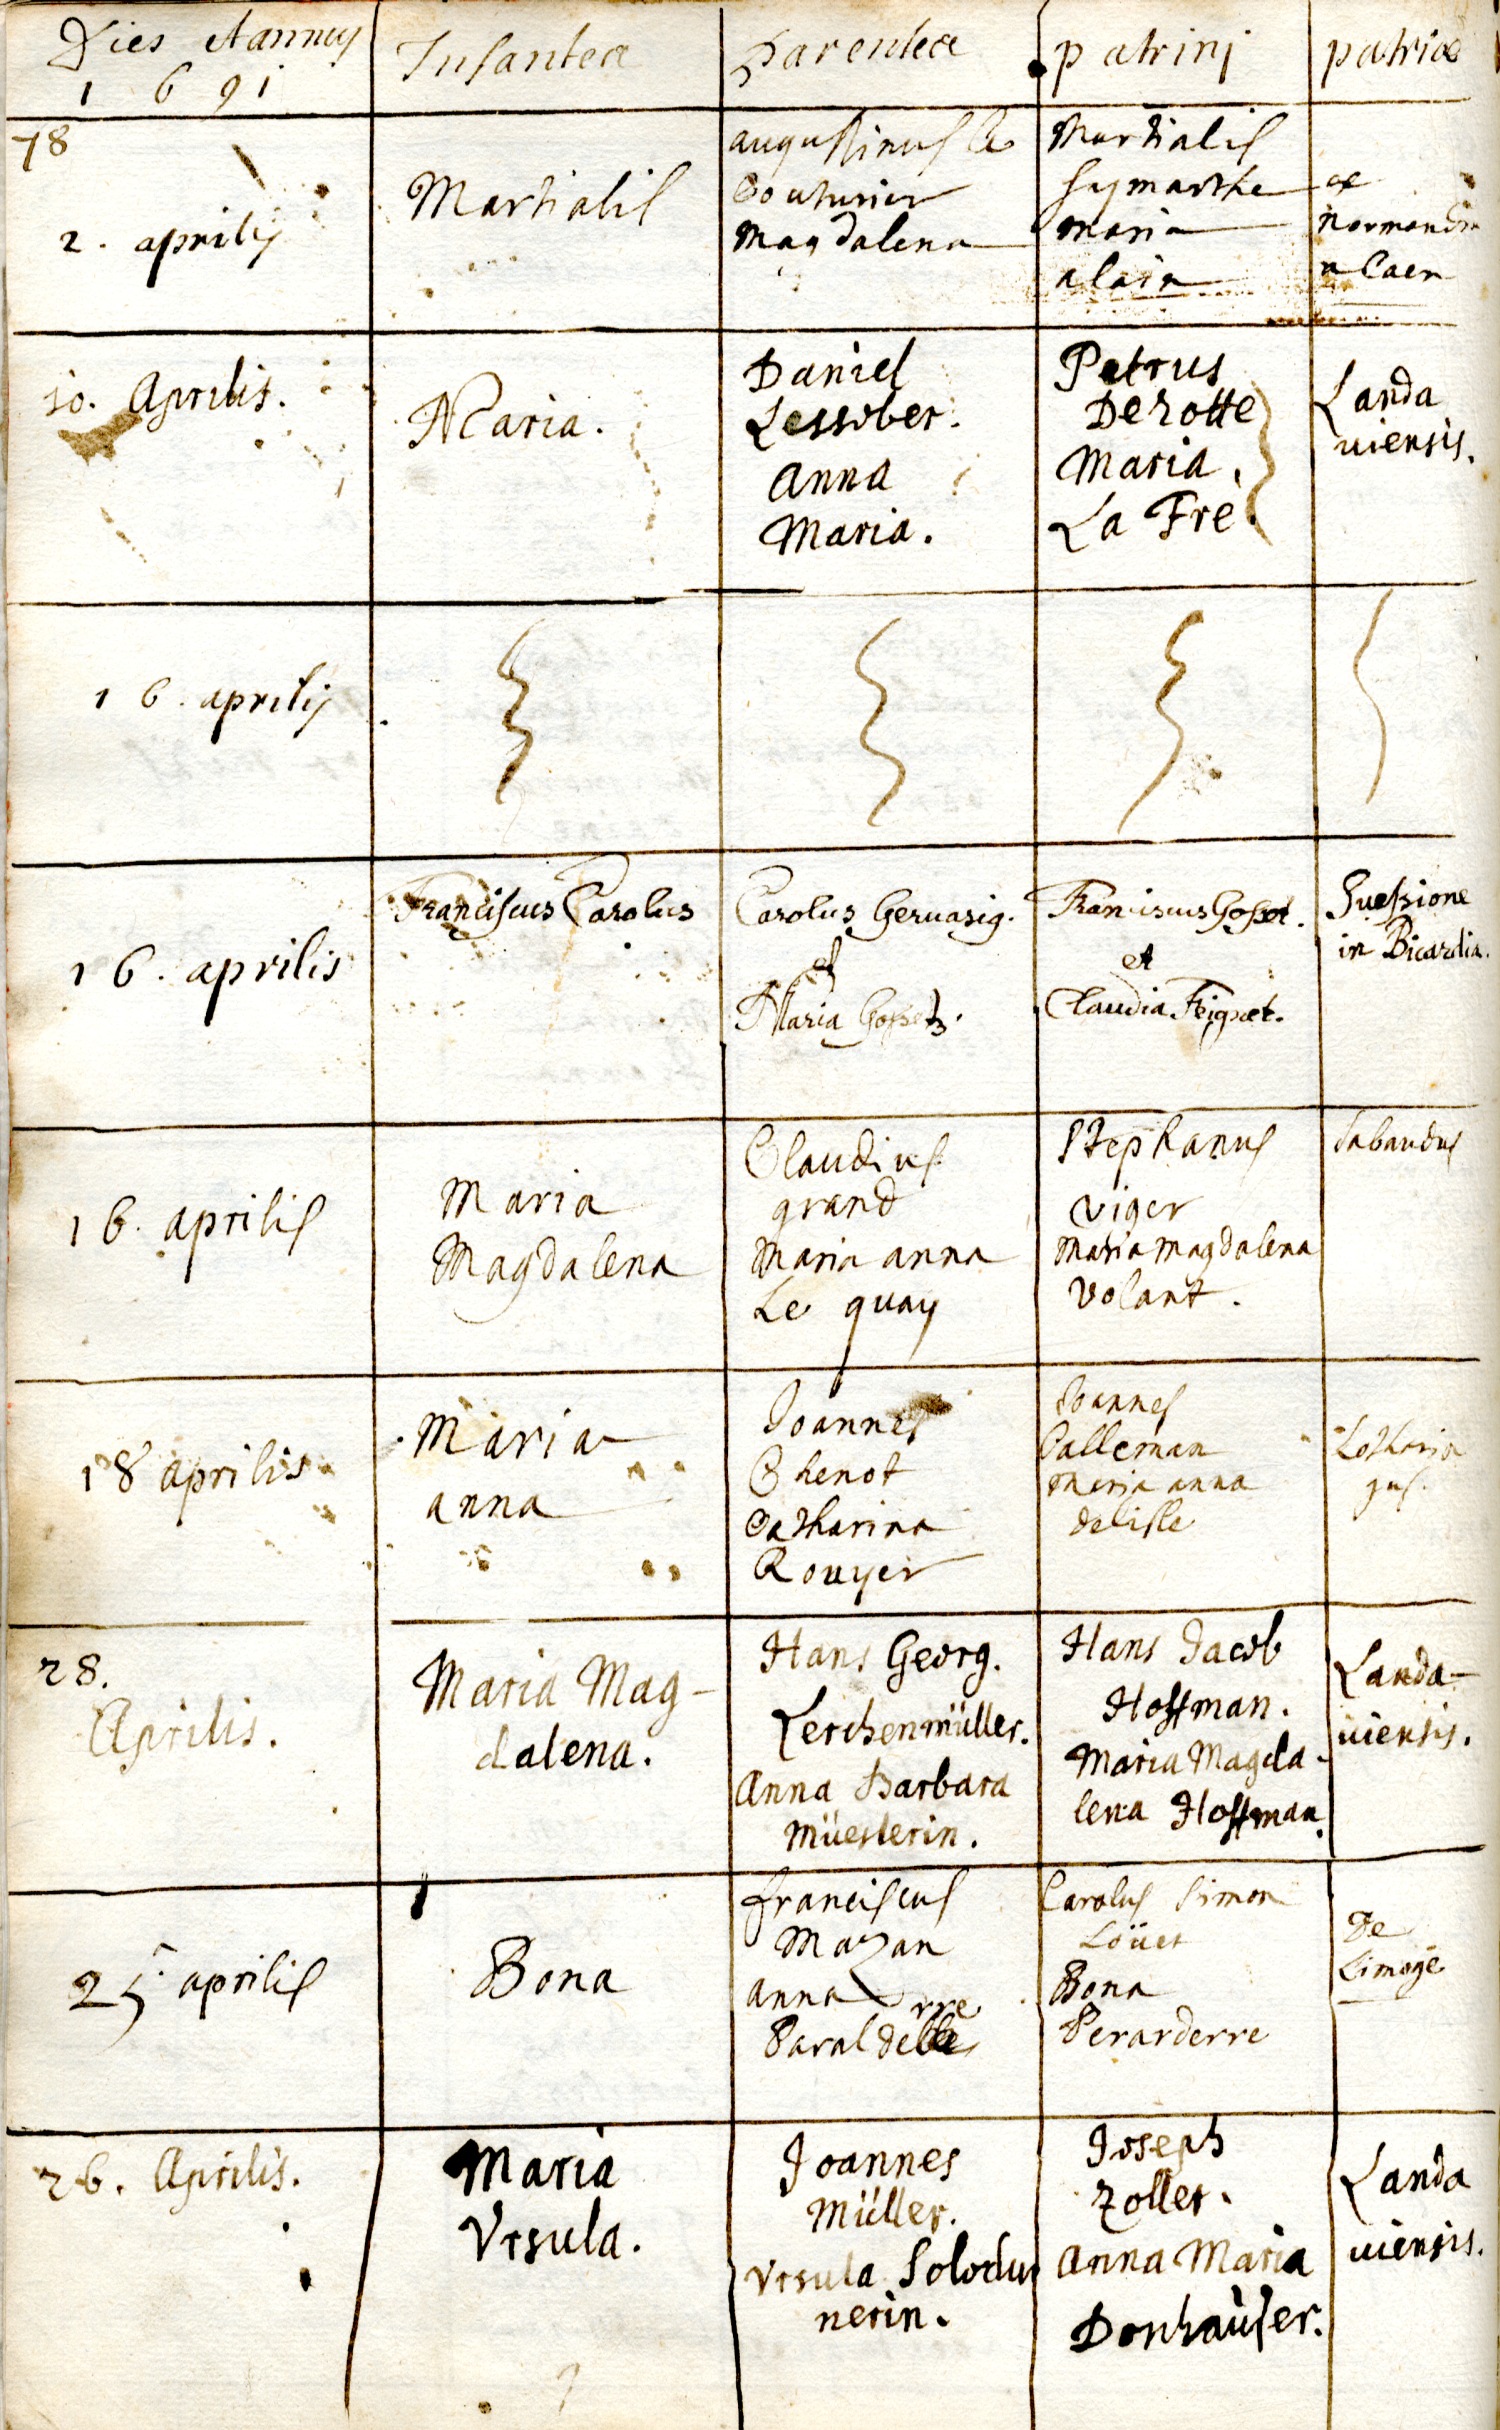 Dies et annus
1 6 9 1
Infantes
Parentes
patrini
patria
78
2. aprilis
Martialis
augustinus le
Couturier
Magdalena
Martialis
Symarthe
maria
alain
ex
Normandia
a Caen
10. Aprilis.
Maria.
Daniel
Lessiber.
Anna
Maria.
Petrus
Derotte
Maria.
La Fre.
Landa
uiensis.
16. aprilis
16. aprilis
Franciscus Carolus
Carolus Geruasig.
et
Maria Gosset.
Franciscus Gosset.
et
Claudia Feignet.
Suessione
in Bicardia.
16. aprilis
Maria
Magdalena
Claudius
grand
Maria anna
Le quay
Stephanus
viger
Maria magdalena
volant.
Sabaudus
18 aprilis
Maria
anna
Joannes
Chenot
Catharina
Rouyer
Joannes
Calleman
maria anna
delisle
Lotharin
gus.
28.
Aprilis.
Maria Mag-
dalena.
Hans Georg.
Lerchenmüller.
Anna Barbara
Müeslerin.
Hans Jacob
Hoffman.
Maria Magda-
lena Hoffman.
Landa-
uiensis.
25. aprilis
Bona
franciscus
Mazan
anna
rre
Paralde
Carolus Simon
Löuet
Bona
Perarderre
De
Limoge
26. Aprilis.
Maria
Vrsula.
Joannes
Müller.
Vrsula Solodur
nerin.
Joseph
Zoller.
Anna Maria
Donhauser.
Landa
uiensis.